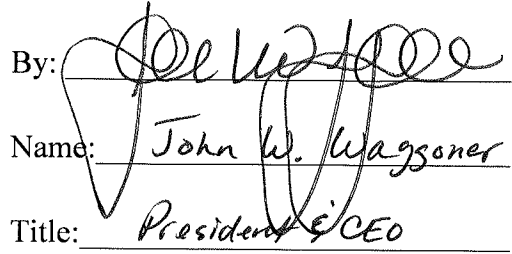 By:
Name: John W. Waggoner
Title: President & CEO